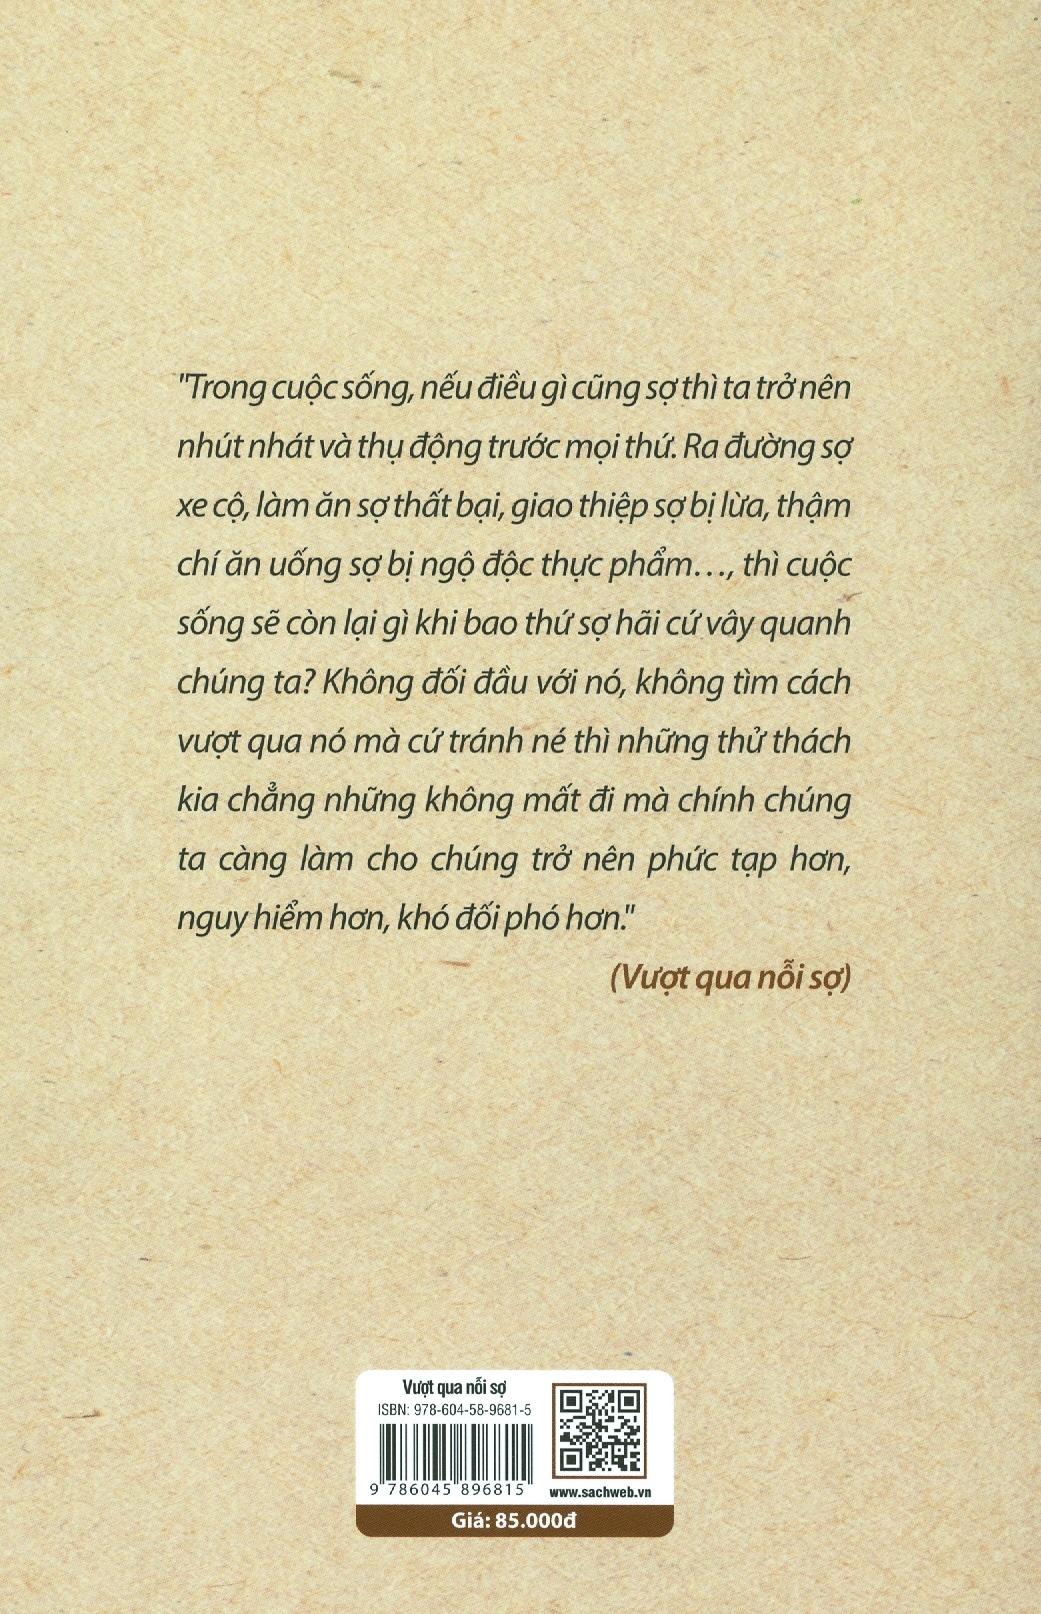 "Trong cuộc sống, nếu điều gì cũng sợ thì ta trở nên
nhút nhát và thụ động trước mọi thứ. Ra đường sợ
xe cộ, làm ăn sợ thất bại, giao thiệp sợ bị lừa, thậm
chí ăn uống sợ bị ngộ độc thực phẩm..., thì cuộc
sống sẽ còn lại gì khi bao thứ sợ hãi cứ vây quanh
chúng ta? Không đối đầu với nó, không tìm cách
vượt qua nó mà cứ tránh né thì những thử thách
kia chẳng những không mất đi mà chính chúng
ta càng làm cho chúng trở nên phức tạp hơn,
nguy hiểm hơn, khó đối phó hơn."
(Vượt qua nỗi sợ)
Vượt qua nỗi sợ
ISBN: 978-604-58-9681-5
9 786045 896815
www.sachweb.vn
Giá: 85.000đ